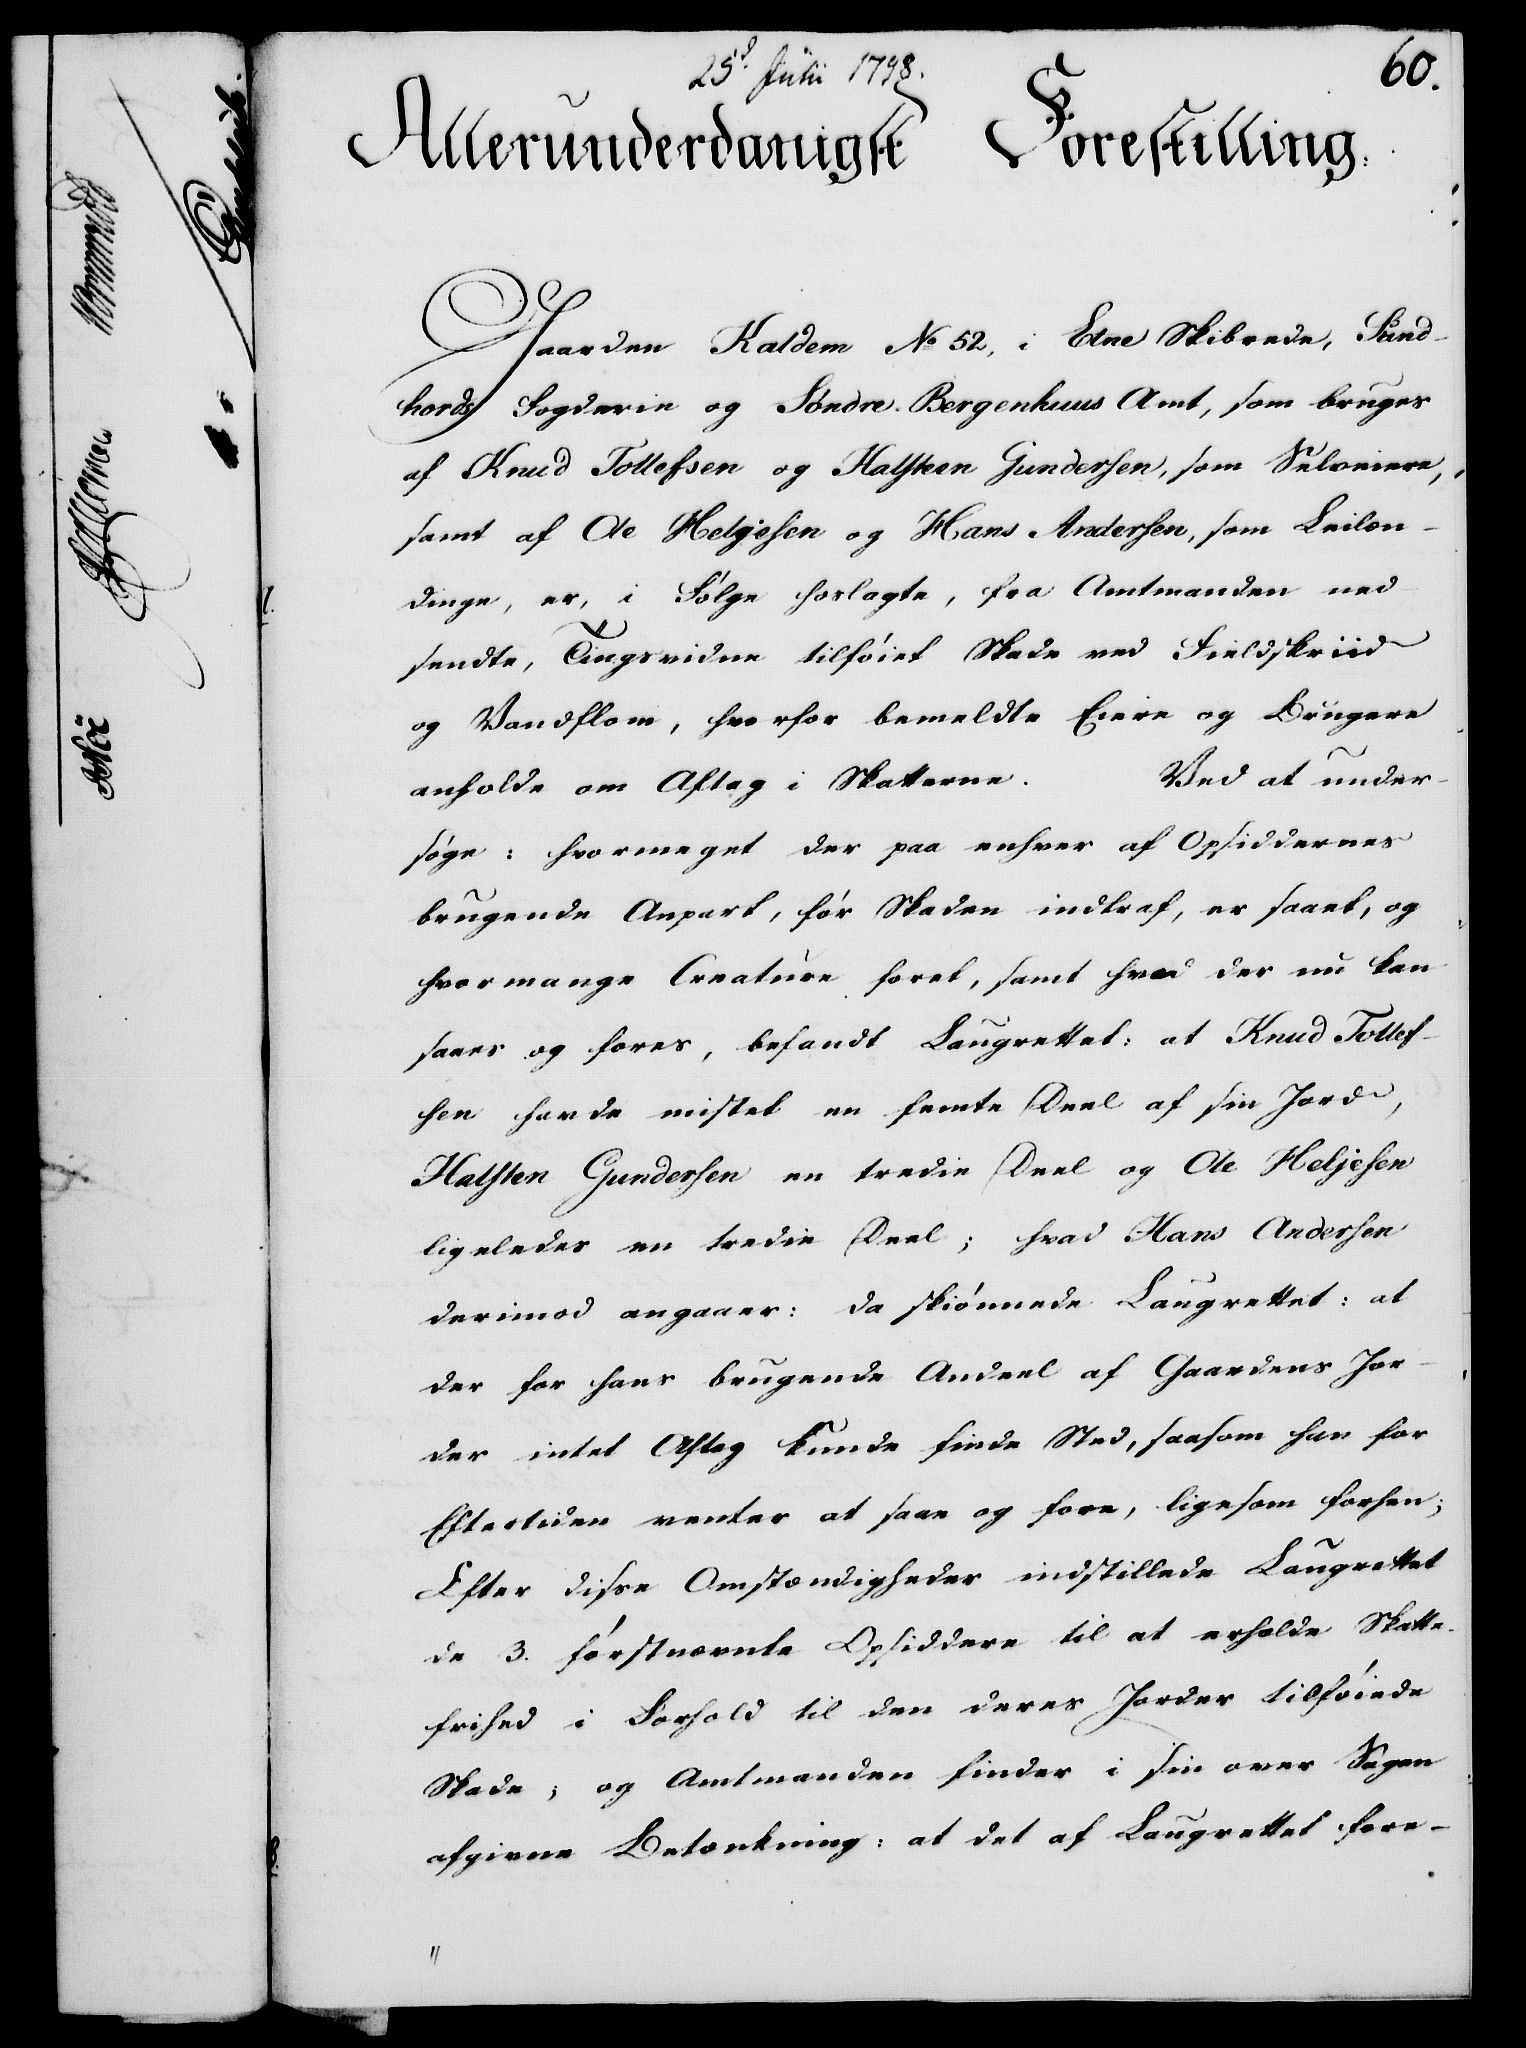 25d Julii 1798.
60.
Allerunderdanigst Forestilling.
Gaarden Kaldem No 52, i Etne Skibrede, Sund-
hords Fogderie og Søndre Bergenhuus Amt, som bruges
af Knud Tollefsen og Halsteen Gundersen, som Selveiere,
samt af Ole Helgesen og Hans Andersen, som Leilæn-
dinge, er, i Følge hoslagte, fra Amtmanden ned
sendte, Tingsvidne tilføiet Skade ved Fieldskriid
og Vandflom, hvorfor bemeldte Eiere og Brugere
anholde om Aftag i Skatterne. Ved at under-
søge: hvormeget der paa enhver af Opsiddernes
brugende Anpart, før Skaden indtraf, er saaet, og
hvormange Creature foret, samt hvad der nu kan
saaes og fores, befandt Laugrettet: at Knud Tollef-
sen havde mistet en femte Deel af sin Jord,
Halsten Gundersen en tredie Deel og Ole Heljesen
ligeledes en tredie Deel; hvad Hans Andersen
derimod angaaer: da skiønnede Laugrettet: at
der for hans brugende Andeel af Gaardens Jor-
der intet Aftag kunde finde Sted, saasom han for
Eftertiden venter at saae og fore, ligesom forhen;
Efter disse Omstændigheder indstillede Laugrettet
de 3. førstnævnte Opsiddere til at erholde Skatte-
frihed i Forhold til den deres Jorder tilføiede
Skade; og Amtmanden finder i sin over Sagen
afgivne Betænkning: at det af Laugrettet fore-
"